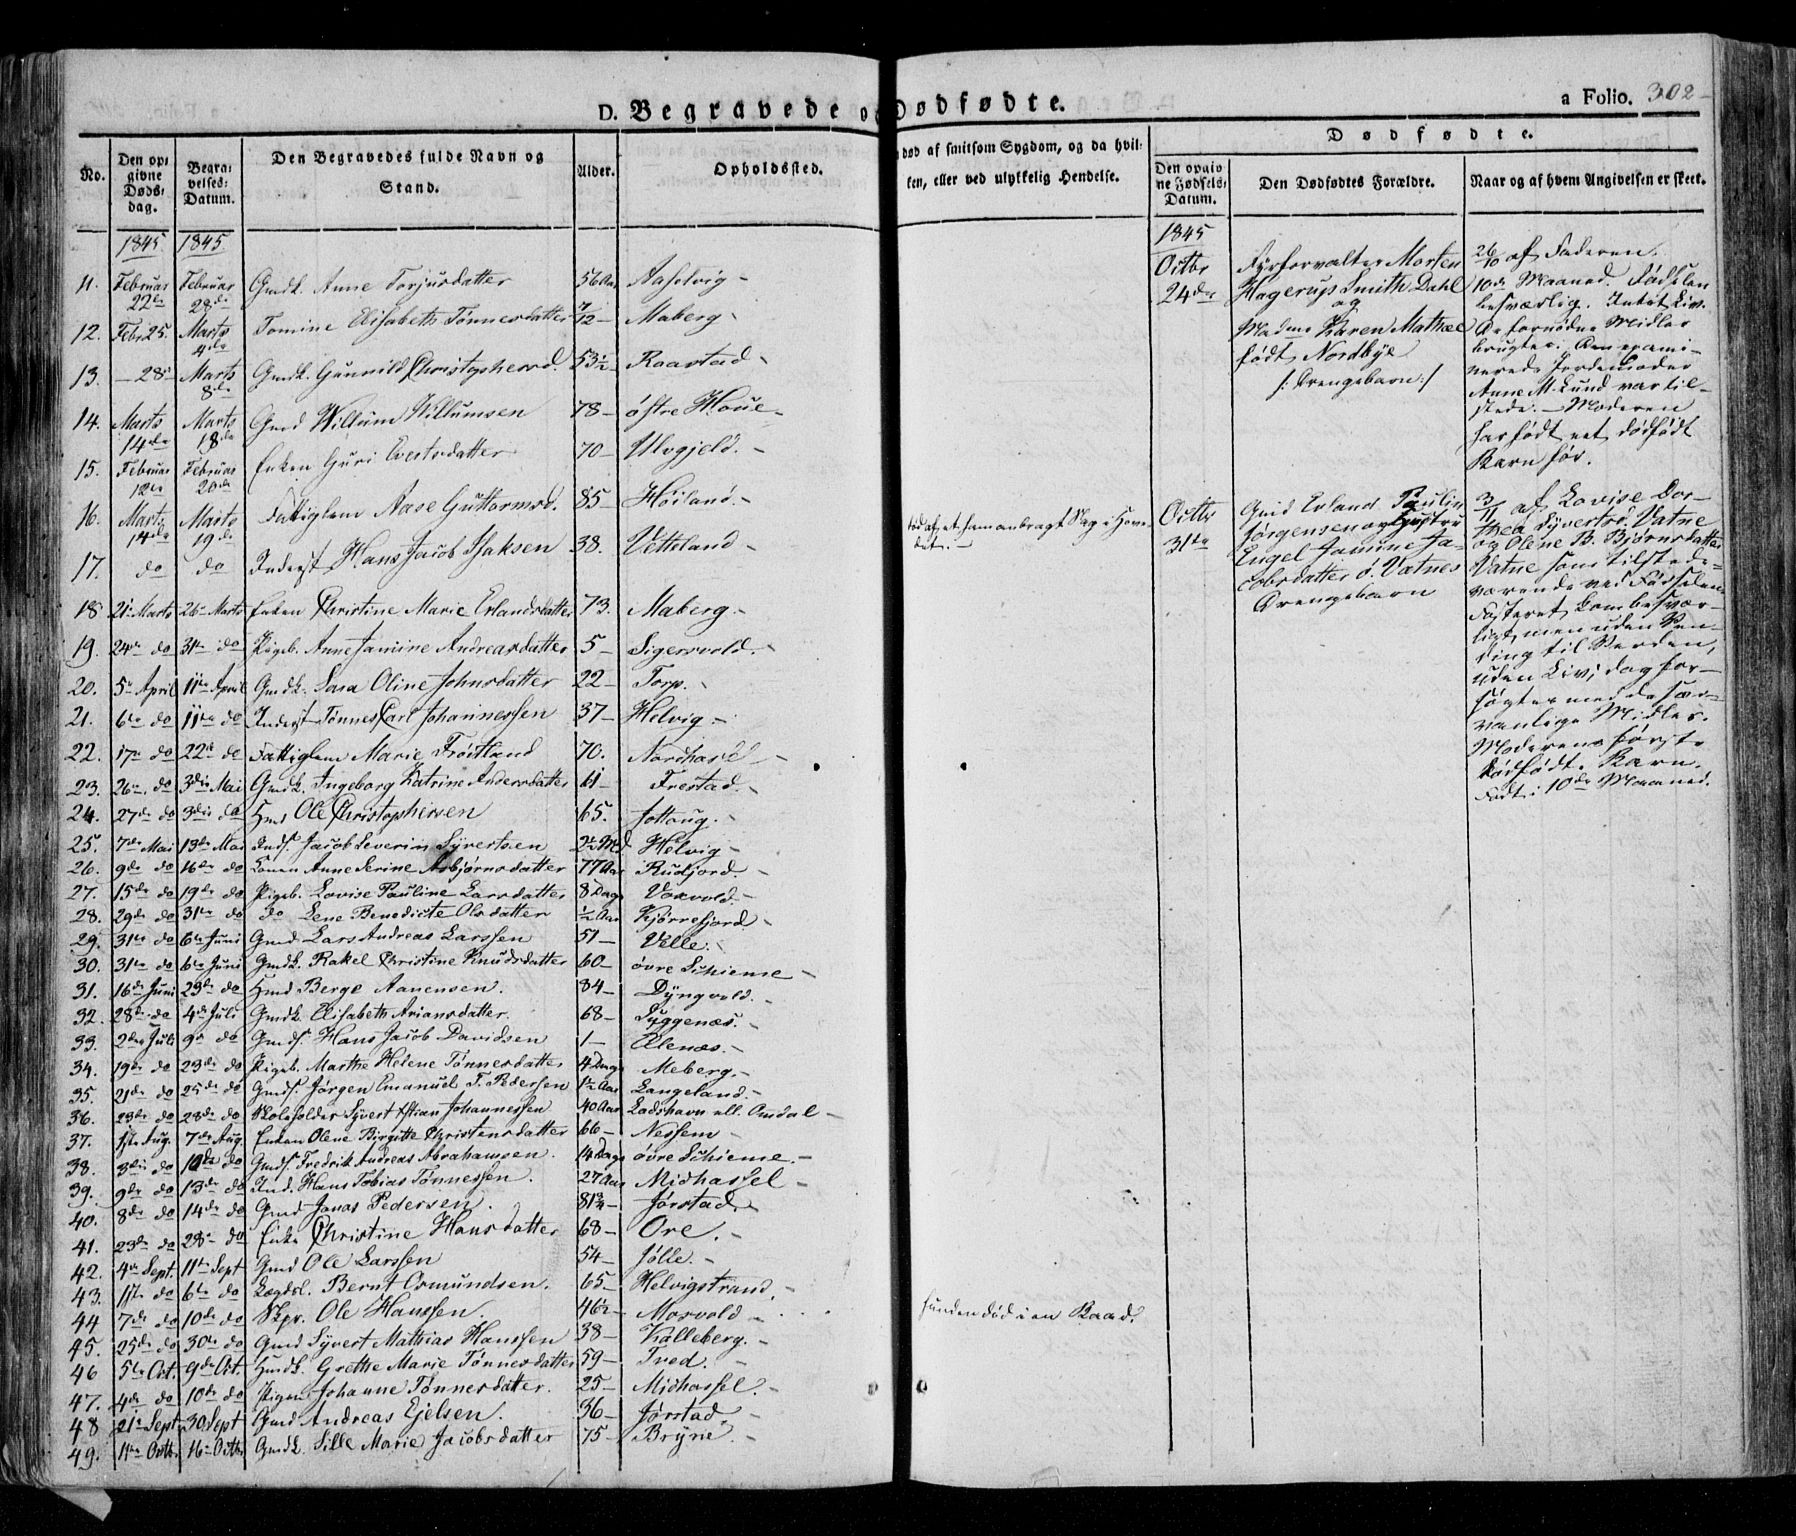 D. Begravede og Dødfødte.
a Folio. 302
No.
Den opgivne Døds-dag.
Begravelses-Datum.
Den Begravedes fulde Navn og Stand.
Alder.
Opholdssted.
død af smitsom Sygdom, og da hvilken, eller ved ulykkelig Hendelse.
Dødfødte.
Den opgivne Fødsels-Datum.
Den Dødfødtes Forældre.
Naar og af hvem Angivelsen er skeet.
1845 1845
11. Februar 22de Februar 28de Gmdk. Anne Torjusdatter 56 Aar Aaselvig
12. Febr 25. Marts 4de Tomine Elisabeth Tønnesdatter 7/12 Maberg
13. 28 Marts 8de Gmdk. Gunnild Christophersd. 53½ Raastad
14. Marts 14de Marts 18de Gmd Willum Willumsen 78 østre Houe
15. Februar 12te Februar 20de Enken Guri Evertsdatter 70 Ulvgjeld
16. Marts 14de Marts 19de Fattiglem Aase Guttormsd. 85 Høiland
17. do do Inderst Hans Jacob Isaksen 38. Vetteland
18 21 Marts 26 Marts Enken Christine Marie Erlandsdatter 73. Maberg
19. 24de do 31te do Pigeb. Anne Jamine Andreasdatter 5 Sigersvold
20. 5te April 11te April Gmdk. Sara Oline Johnsdatter 22 Torp
21. 6te do 11te do Inderst Tønnes Carl Johannessen 37 Helvig
22. 17de do 22de do Fattiglem Marie Frøitland 70. Nordhassel
23. 26de do 3die Mai Gmdk. Ingeborg Katrine Andersdatter 61 Frestad
24. 27de do 3die do Hmd Ole Christophersen 65. Jottaug
25. 7de Mai 13de Mai Inds. Jacob Severin Syvertsen 2½ Md Helvig
26. 9de do 16de do Konen Anne Serine Asbjørnsdatter 77 Aar Rudjord
27. 15de do 19de do Pigeb. Lovise Pauline Larsdatter 8 Dage Voxvold
28. 29de do 31te do do Lene Benedicte Olsdatter ½ Aar Kjørrefjord
29. 31te do 6te Juni Gmd Lars Andreas Larssen 51 Velle
30. 31te do 6te Juni Gmdk. Rakel Christine Knudsdatter 60 øvre Schieme
31. 16de Juni 23de do Hmd Berge Aanensen. 84 Dyngvold
32. 28de do 4de Juli Gmdk. Elisabeth Ariansdatter. 68 Syggenæs.
33. 2den Juli 9de do Gmds. Hans Jacob Davidsen 1 Ølenæs.
34. 19de do 23de do Pigeb. Marthe Helene Tønnesdatter 4 Dage Meberg
35. 21de do 25de do Gmds. Jørgen Emanuel T. Pedersen 1½ Aar Langeland.
36. 23de do 28de do Skoleholder Syvert Stian Johannessen 40 Aar Ladshavn ell. Omdal
37. 1ste Aug. 7de Aug. Enken Olene Birgitte Christensdatter 66 Nessem
38. 3die do 10de do Gmds. Fredrik Andreas Abrahamsen. 14 Dage øvre Schieme.
39. 9de do 13de do Ind. Hans Tobias Tønnessen. 27 Aar Midhassel
40. 8de do 14de do Gmd Jonas Pedersen. 81¾ Jørstad
41. 23de do 28de do Enke Christine Hansdatter 68 Ore.
42. 4de Sept. 11te Sept Gmd Ole Larssen 54 Jølle.
43. 1ste do 6te do Lægdsl. Bernt Osmundsen. 65 Helvigstrand.
44 7de do 10de do Skpr. Ole Hanssen. 46½ Mosvold funden død i en Baad.
45. 25de do 30de do Gmd Syvert Mathias Hanssen 38 Kalleberg.
46 5te Oct. 9de Oct. Hmdk. Grethe Marie Tønnesdatter 59 Tved.
47. 4de do 10de do Pigen Johanne Tønnesdatter. 25 Midhassel.
48 21de Sept 30 Sept Gmd Andreas Ejelsen. 36 Jørstad
49. 11te Octbr. 16 Octbr. Gmdk. Sille Marie Jacobsdatter 75 Bryne
1845
Octbr 24de
Fyrforvalter Morten
Hagerup Smith Dahl
og
Madme Karen Mathea
født Nordbye
/: Drengebarn :/
26/10 af Faderen.
10de Maaned. Fødselen
besværlig. Intet Liv.
De fornødne Midler
brugte. Den exami-
nerede Jordemoder
Anne M. Lund var til-
stede. Moderen
har født et dødfødt
Barn før.
Octbr 31te
Gmd Erland Paulin
Jørgensen og Hustru
Engel Jamine Ja-
cobsdatter ø. Vatnes
Drengebarn
3/11 af Lovise Dor-
thea Syvertsd. Vatne
og Olene B. Bjørnsdatter
Vatne som tilstede-
værende ved Fødselen
Fosteret kom besvær-
ligt, men uden Ven-
ding til Verden,
uden Liv, dog for-
søgtes med de sæd-
vanlige Midler.
Moderens første
dødfødte Barn.
Født i 10de Maaned.